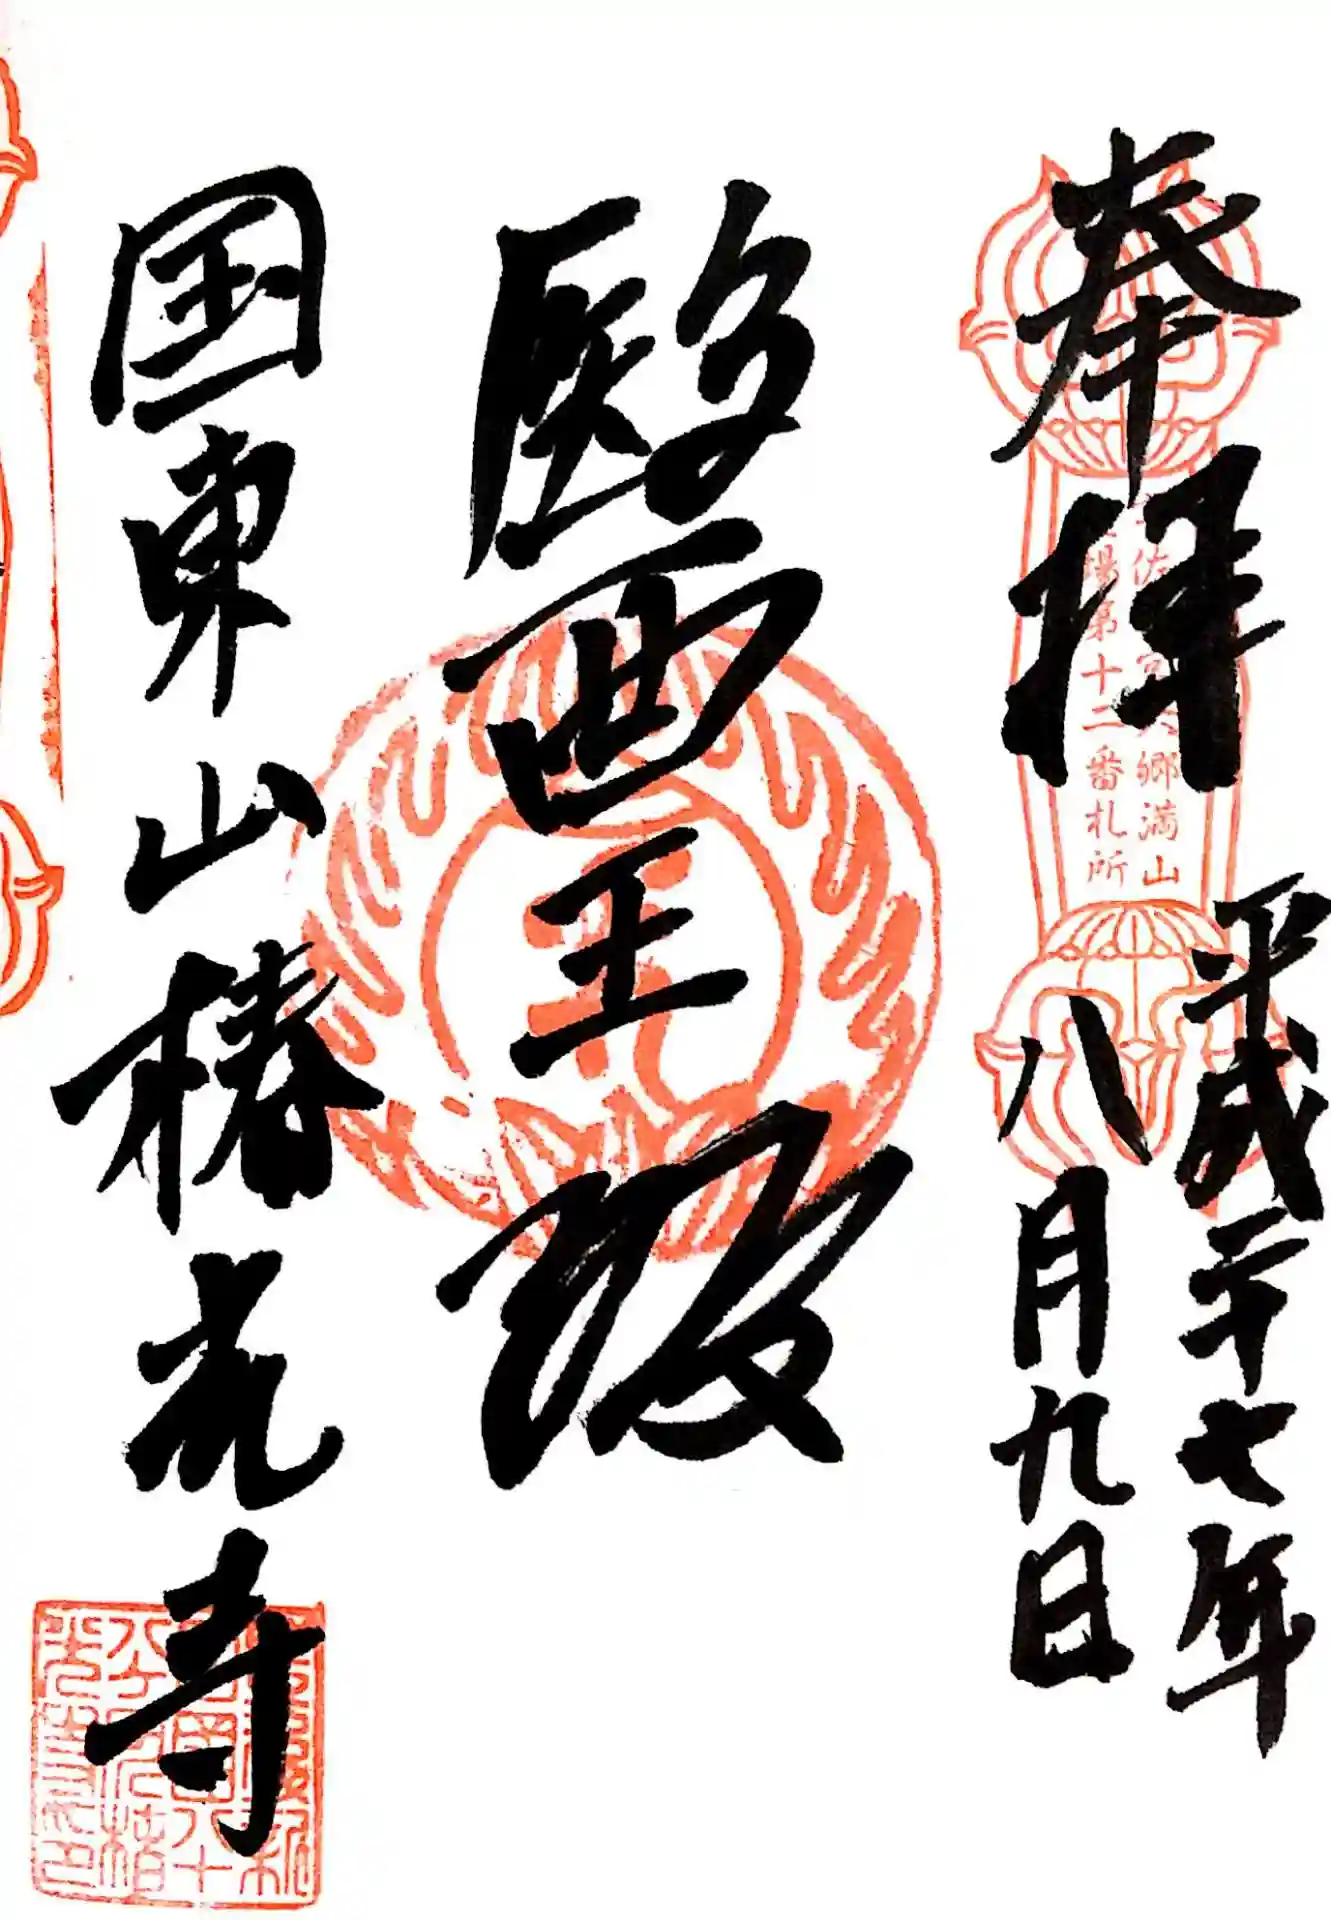 奉拝
平成二十七年
八月九日
醫王殿
国東山椿光寺
場第十二番札所
郷満山